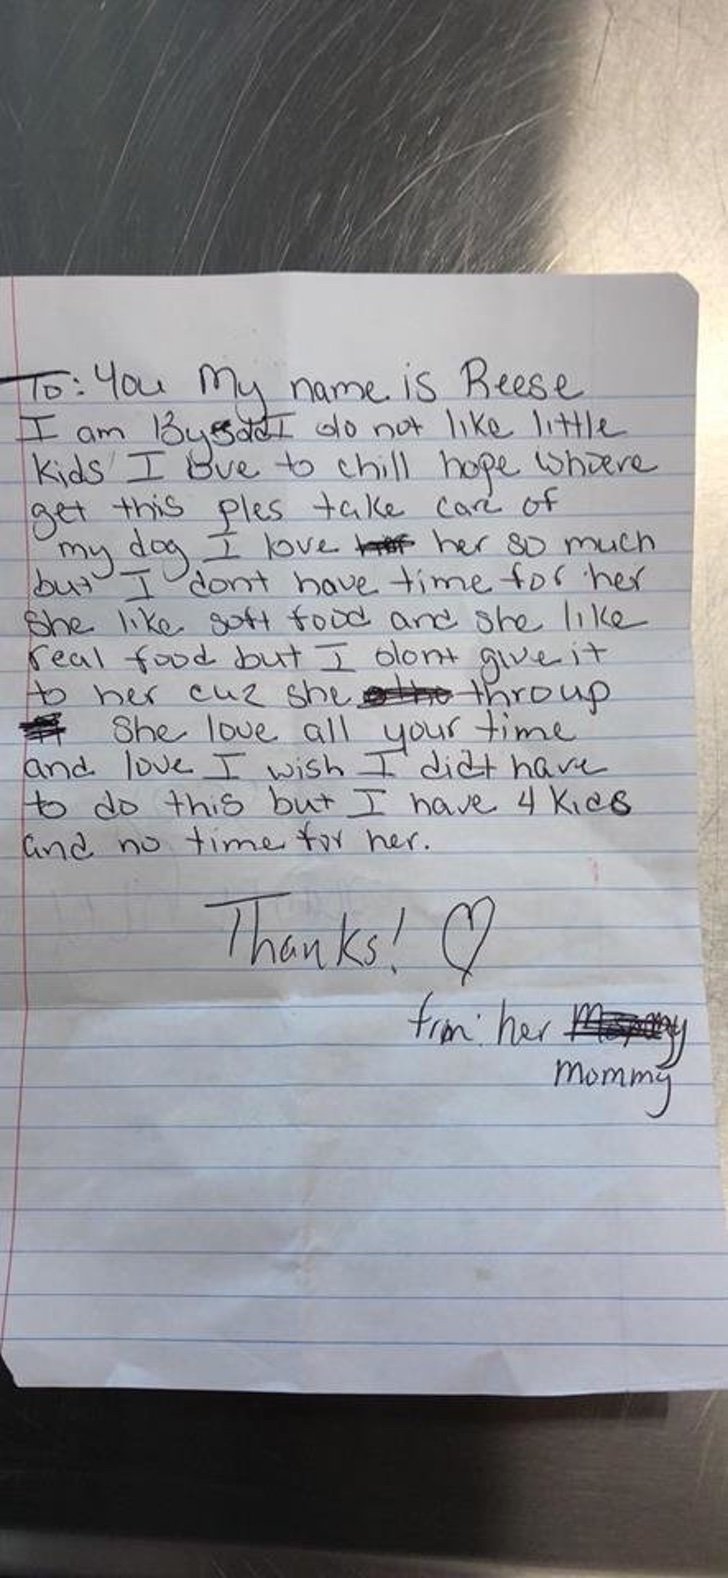 To: You My name is Reese
I am 13ys old I do not like little
kids I love to chill hope whoere
get this ples take care of
my dog I love her so much
but I dont have time for her
She like soft food and she like
real food but I dont give it
to her cuz she throup
She love all your time
and love I wish I didt have
to do this but I have 4 kids
and no time for her.
Thanks! ♡
from: her
mommy